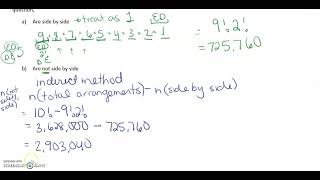 question,
a) Are side by side → treat as 1 ED
9·8·7·6·5·4·3·2·1
= 9!2!
= 725,760
ED
DE
b) Are not side by side
indirect method
n(total arrangements) - n(side by side)
n(not side by side)
= 10! - 9!2!
= 3,628,000 - 725,760
= 2,903,040